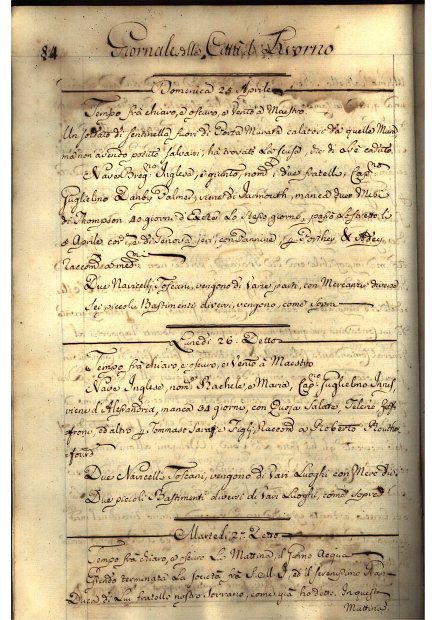 84 Giornale della Città di Livorno
Domenica 25 Aprile
Tempo frà chiaro, e oscuro, e Vento à Maestro
Un soldato di sentinella fuori di Porta Murata calatosi da quelle Mura
mà non avendo potuto salvarsi, hà trovato La scusa, che di esse caduto
Nave Inglese, è giunto, nom.º i due fratelli, Cap.no
Guglielmo Palmer, viene di Jarmouth, manca due Mesi
di Thompson 40 giorni d'Exeter Lo stesso giorno, passò Lo stretto li
5 Aprile cor.te, e di Genova jeri, con
Raccom.
Due Navicelli Toscani, vengono di varj posti, con Mercanzie diverse
Sei piccoli Bastimenti diversi, vengono, come sopra
Lunedì 26. Detto
Tempo frà chiaro, e oscuro, e Vento à Maestro
Nave Inglese, nom.º Rachele, e Maria, Cap.no Guglielmo
viene d'Alessandria, manca 54 giorne, con Quoja Salate, Telerie, Zaf-
frone, ed altro p Tommaso e Figlj, Raccom.a à Roberto
Due Navicelli Toscani, vengono di Vari Luoghi con Merc. Div.
Due piccoli Bastimenti diversi di Vari Luoghi, come sopra
Martedì 27. Detto
Tempo frà chiaro, e oscuro La Mattina, il Acqua
Essendo terminata La società frà S. M. I, ed il serenissimo Gran
Duca di Lui fratello nostro Sovrano, come già hò detto. In questa
Mattina